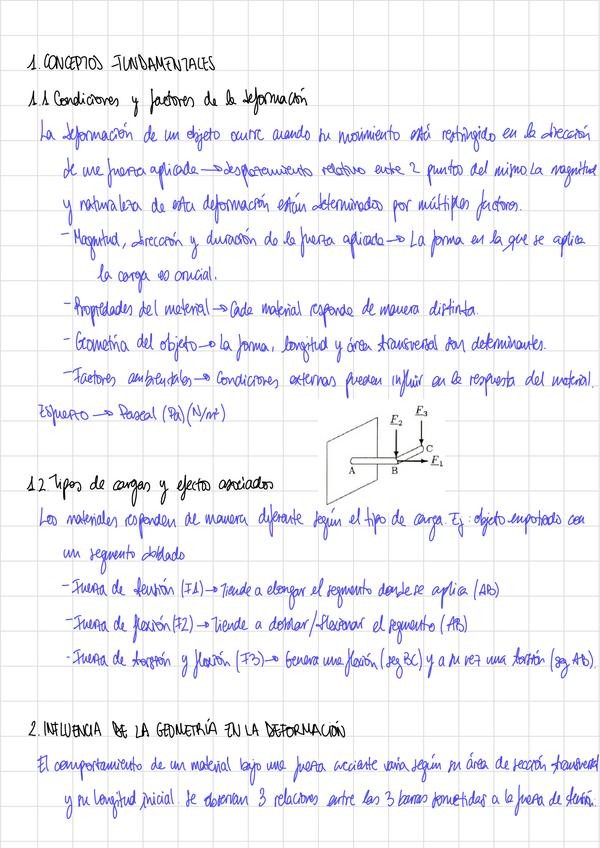 1. CONCEPTOS FUNDAMENTALES
1.1 Condiciones y factores de la deformación
La deformación de un objeto ocurre cuando su movimiento está restringido en la dirección
de una fuerza aplicada → desplazamiento relativo entre 2 puntos del mismo. La magnitud
y naturaleza de esta deformación están determinados por múltiples factores.
- Magnitud, dirección y duración de la fuerza aplicada → La forma en la que se aplica
la carga es crucial.
- Propiedades del material → Cada material responde de manera distinta.
- Geometría del objeto → La forma, longitud y área transversal son determinantes.
- Factores ambientales → Condiciones externas pueden influir en la respuesta del material.
Esfuerzo → Pascal (Pa) (N/m²)
F₂ F₃
A B C F₁
1.2 Tipos de cargas y efectos asociados
Los materiales responden de manera diferente según el tipo de carga. Ej: objeto empotrado con
un segmento doblado
- Fuerza de tensión (F1) → Tiende a elongar el segmento donde se aplica (AB)
- Fuerza de flexión (F2) → Tiende a doblar/flexionar el segmento (AB)
- Fuerza de torsión y flexión (F3) → Genera una flexión (seg BC) y a su vez una torsión (seg AB).
2. INFLUENCIA DE LA GEOMETRÍA EN LA DEFORMACIÓN
El comportamiento de un material bajo una fuerza accionte varía según su área de sección transversal
y su longitud inicial. Se observan 3 relaciones entre las 3 barras sometidas a la fuerza de tensión.